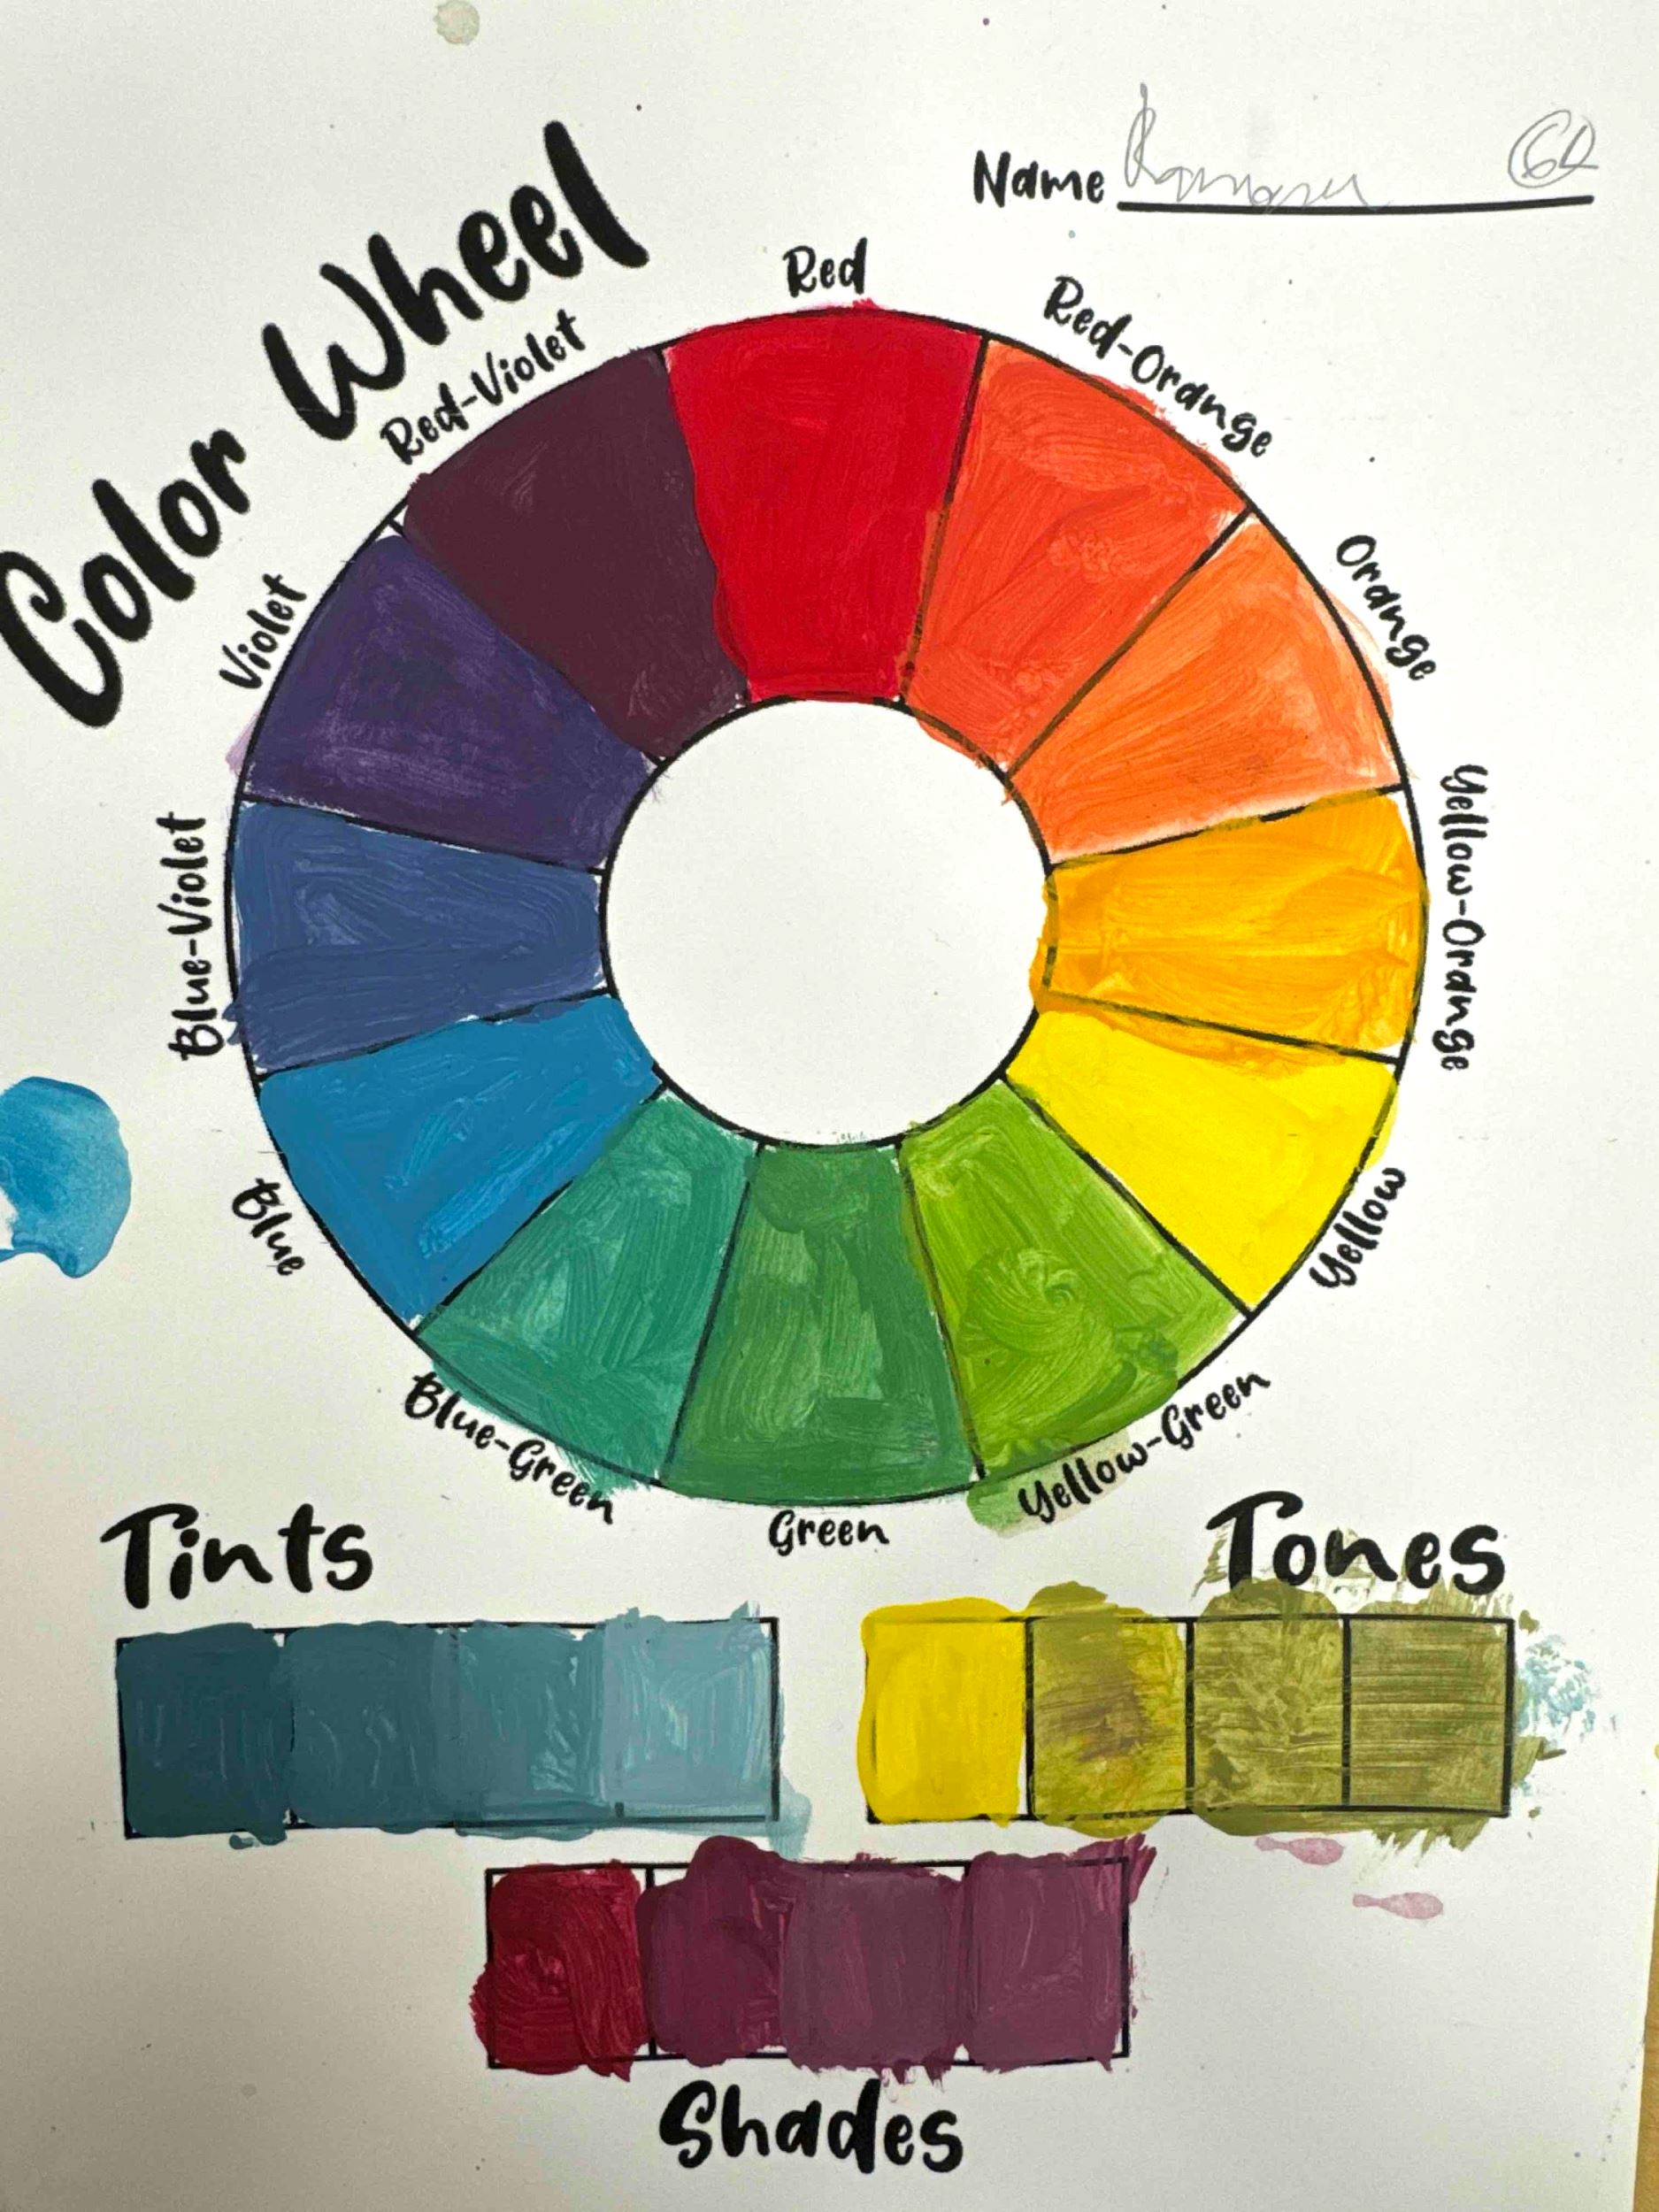 Name
Color Wheel
Red
Red-Orange
Orange
Yellow-Orange
Yellow
Yellow-Green
Green
Blue-Green
Blue
Blue-Violet
Violet
Red-Violet
Tints
Tones
Shades